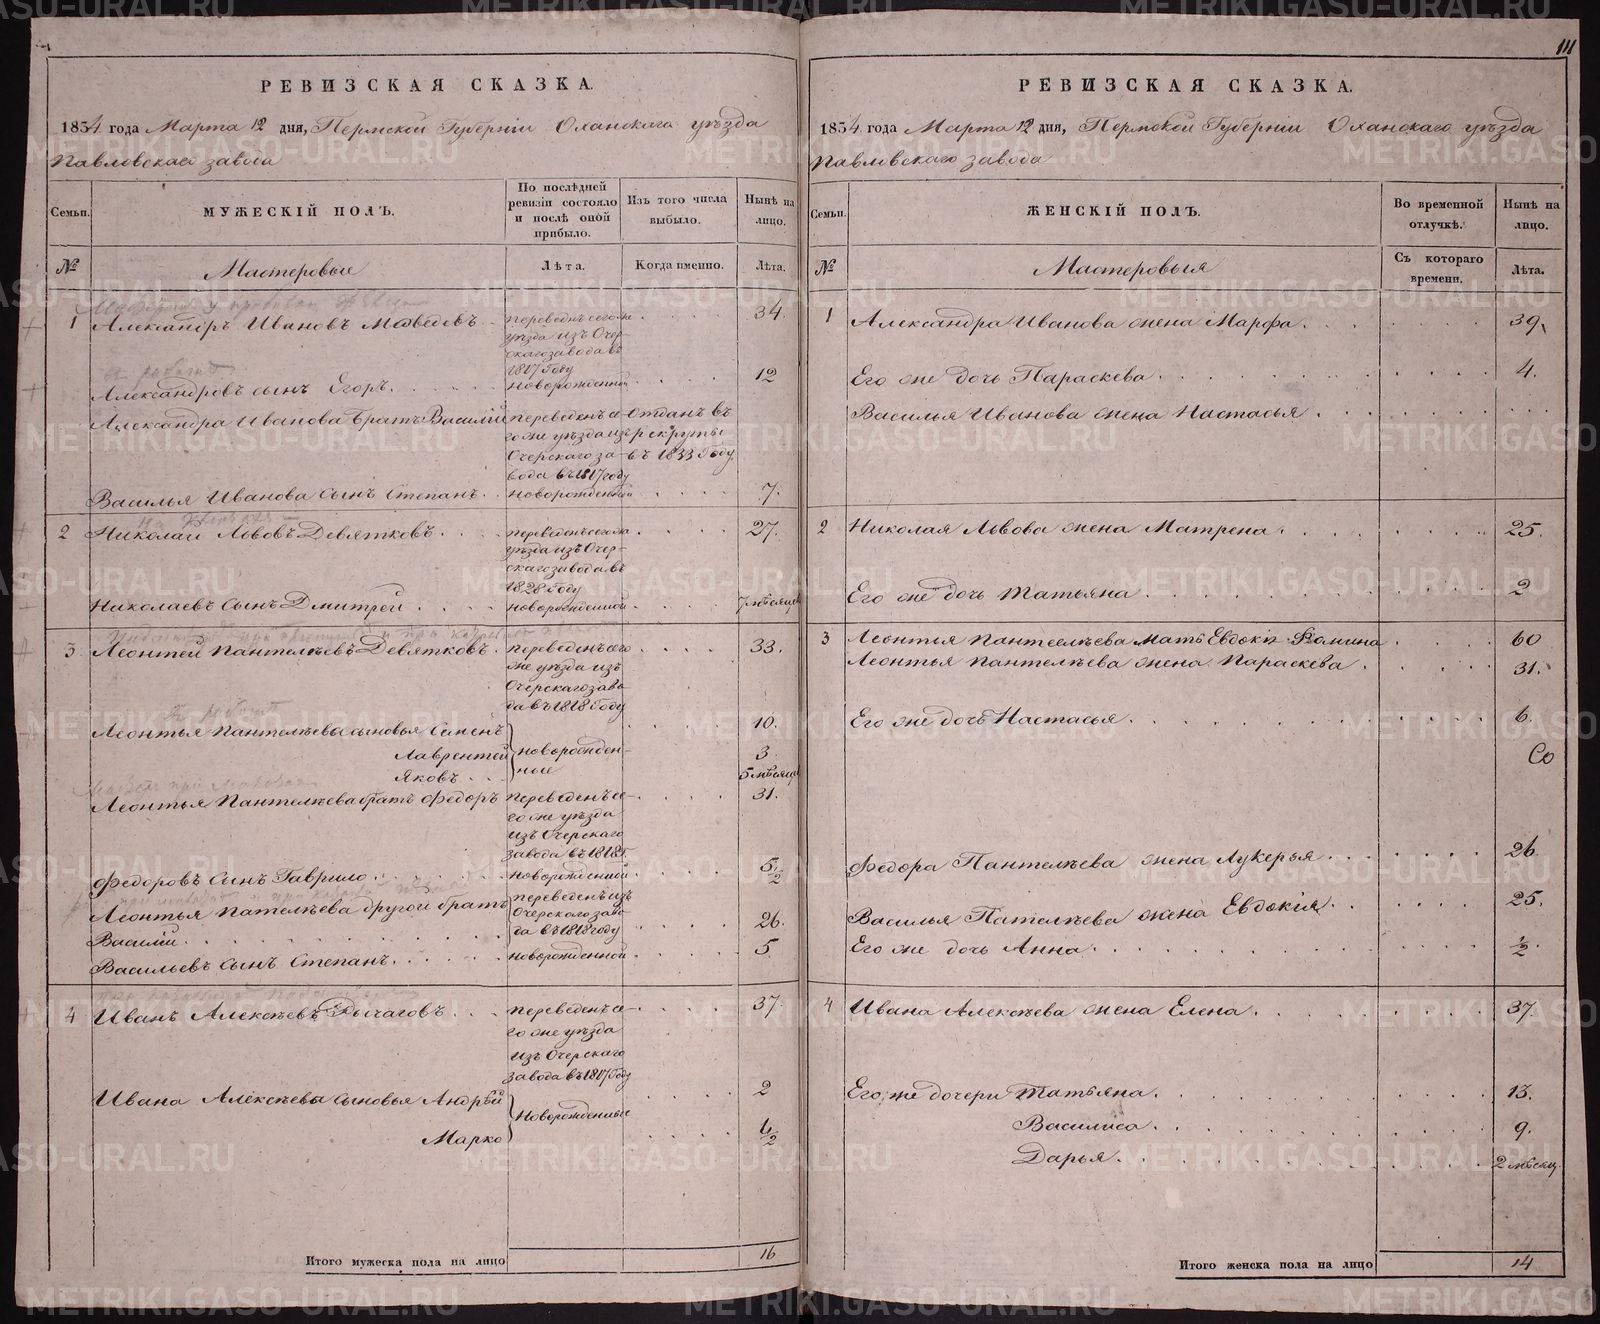 РЕВИЗСКАЯ СКАЗКА.
1834 года Марта 12 дня, Пермской Губерніи Оханскаго уѣзда
Павловскаго завода
Семьи.
МУЖЕСКІЙ ПОЛЪ.
По послѣдней ревизіи состояло и послѣ оной прибыло.
Изъ того числа выбыло.
Нынѣ на лицо.
№
Мастеровые
Лѣта.
Когда именно.
Лѣта.
1 Александръ Ивановъ Матвеевъ
переведенъ сего же
уѣзда изъ Очер-
скаго завода въ
1817 Году
34.
Александровъ сынъ Егоръ
новорожденной
12
Александра Иванова братъ Василій
переведенъ се-
го же уѣзда изъ
Очерскаго за-
вода въ 1817 году
отданъ въ
рекруты
въ 1833 Году
Василья Иванова сынъ Степанъ
новорожденной
7.
2 Николай Львовъ Девятковъ
переведенъ сего же
уѣзда изъ Очер-
скаго завода въ
1828 Году
27.
Николаевъ сынъ Дмитрей
новорожденной
7 мѣсяцов
3 Леонтей Пантелѣевъ Девятковъ
переведенъ сего
же уѣзда изъ
Очерскаго заво-
да въ 1818 Году
33.
Леонтья Пантелѣева сыновья Семенъ
10.
Лаврентей
новорожден-
3
Яковъ
ные
5 мѣсяц
Леонтья Пантелѣева братъ Федоръ
переведенъ се-
го же уѣзда
изъ Очерскаго
завода въ 1818 г.
31.
Федоровъ сынъ Гаврило
новорожденной
5/2
Леонтья Пателѣева другой братъ
Василій
переведенъ изъ
Очерскаго заво-
да въ 1818 году
26.
Васильевъ сынъ Степанъ
новорожденной
5
4 Иванъ Алексѣевъ Рычаговъ
переведенъ се-
го же уѣзда
изъ Очерскаго
завода въ 1817 Году
37.
Ивана Алексѣева сыновья Андрѣй
2
Новорожденные
Марко
Итого мужеска пола на лицо
16
111
РЕВИЗСКАЯ СКАЗКА.
1834 года Марта 12 дня, Пермской Губерніи Оханскаго уѣзда
Павловскаго завода
Семьи.
ЖЕНСКІЙ ПОЛЪ.
Во временной отлучкѣ.
Нынѣ на лицо.
№
Мастеровыя
Съ котораго времени.
Лѣта.
1 Александра Иванова жена Марфа 39.
Его же дочь Параскева 4.
Василья Иванова жена Настасья
2 Николая Львова жена Матрена 25.
Его же дочь Татьяна 2
3 Леонтья Пантелѣева мать Евдокія Фомина 60
Леонтья Пантелѣева жена Параскева 31.
Его же дочь Настасья 6.
Федора Пантелѣева жена Лукерья 26
Василья Пателѣева жена Евдокія 25.
Его же дочь Анна 1/2
4 Ивана Алексѣева жена Елена 37.
Его же дочери Татьяна 13.
Василиса 9.
Дарья 2 мѣсяц.
Итого женска пола на лицо
14
METRIKI.GASO-URAL.RU